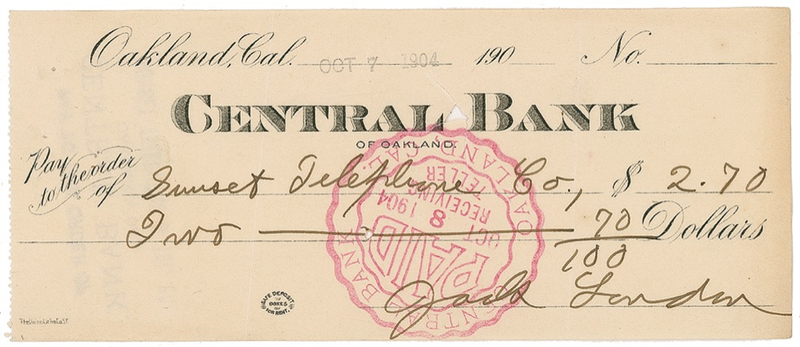 Oakland, Cal. OCT 7 1904 190 No.
CENTRAL BANK
OF OAKLAND.
Pay to the order of Sunset Telephone Co., $ 2.70
Two 70/100 Dollars
Jack London
CENTRAL BANK OAKLAND, CAL.
PAID
OCT 8 1904
RECEIVING TELLER
SAFE DEPOSIT BOXES FOR RENT.